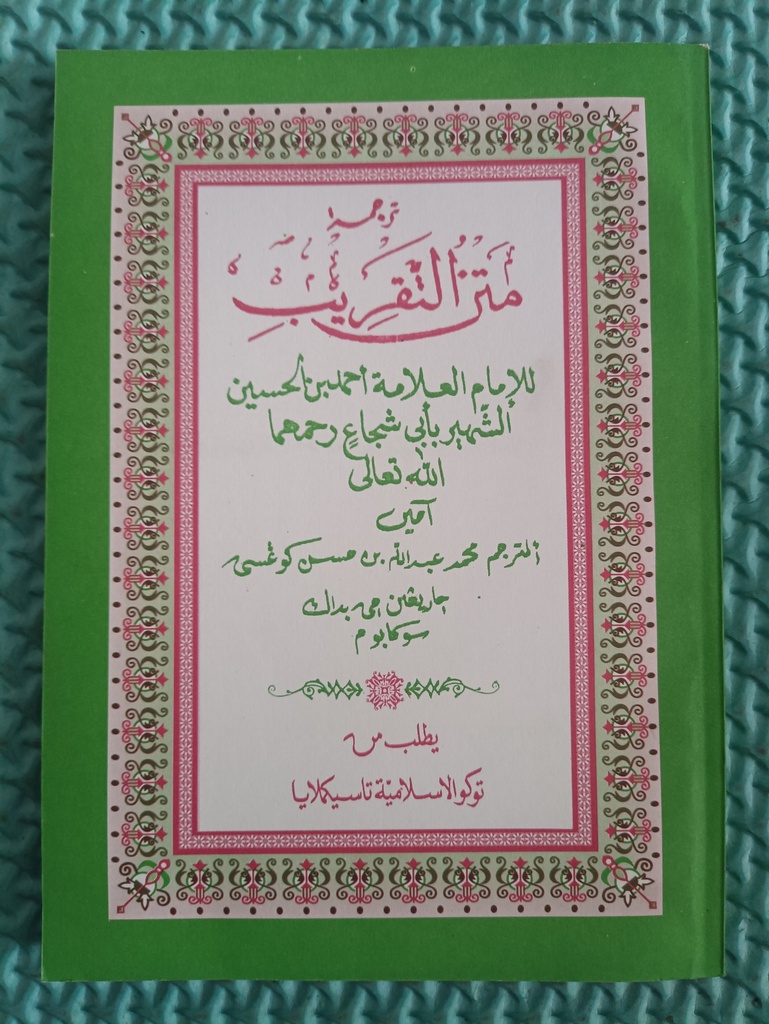 ترجمة
متن التّقريب
للإمام العلامة أحمد بن الحسين
الشّهير بأبي شجاعٍ رحمهما
الله تعالى
آمين
المترجم محمد عبدالله بن حسن
سوكابوم
يطلب من
توكو الاسلاميّة تاسيكملايا